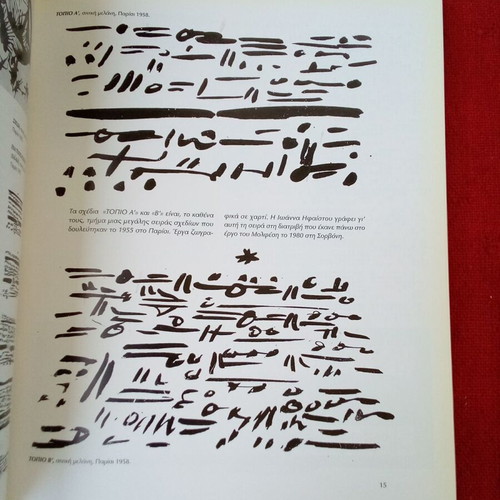 ΤΟΠΙΟ Α', σινική μελάνη, Παρίσι 1958.
Τα σχέδια «ΤΟΠΙΟ Α'» και «Β'» είναι, το καθένα
τους, τμήμα μιας μεγάλης σειράς σχεδίων που
δουλεύτηκαν το 1955 στο Παρίσι. Έργα ζωγρα-
φικά σε χαρτί. Η Ιωάννα Ηφαίστου γράφει γι'
αυτή τη σειρά στη διατριβή που έκανε πάνω στο
έργο του Μολφέση το 1980 στη Σορβόνη.
ΤΟΠΙΟ Β', σινική μελάνη, Παρίσι 1958.
15